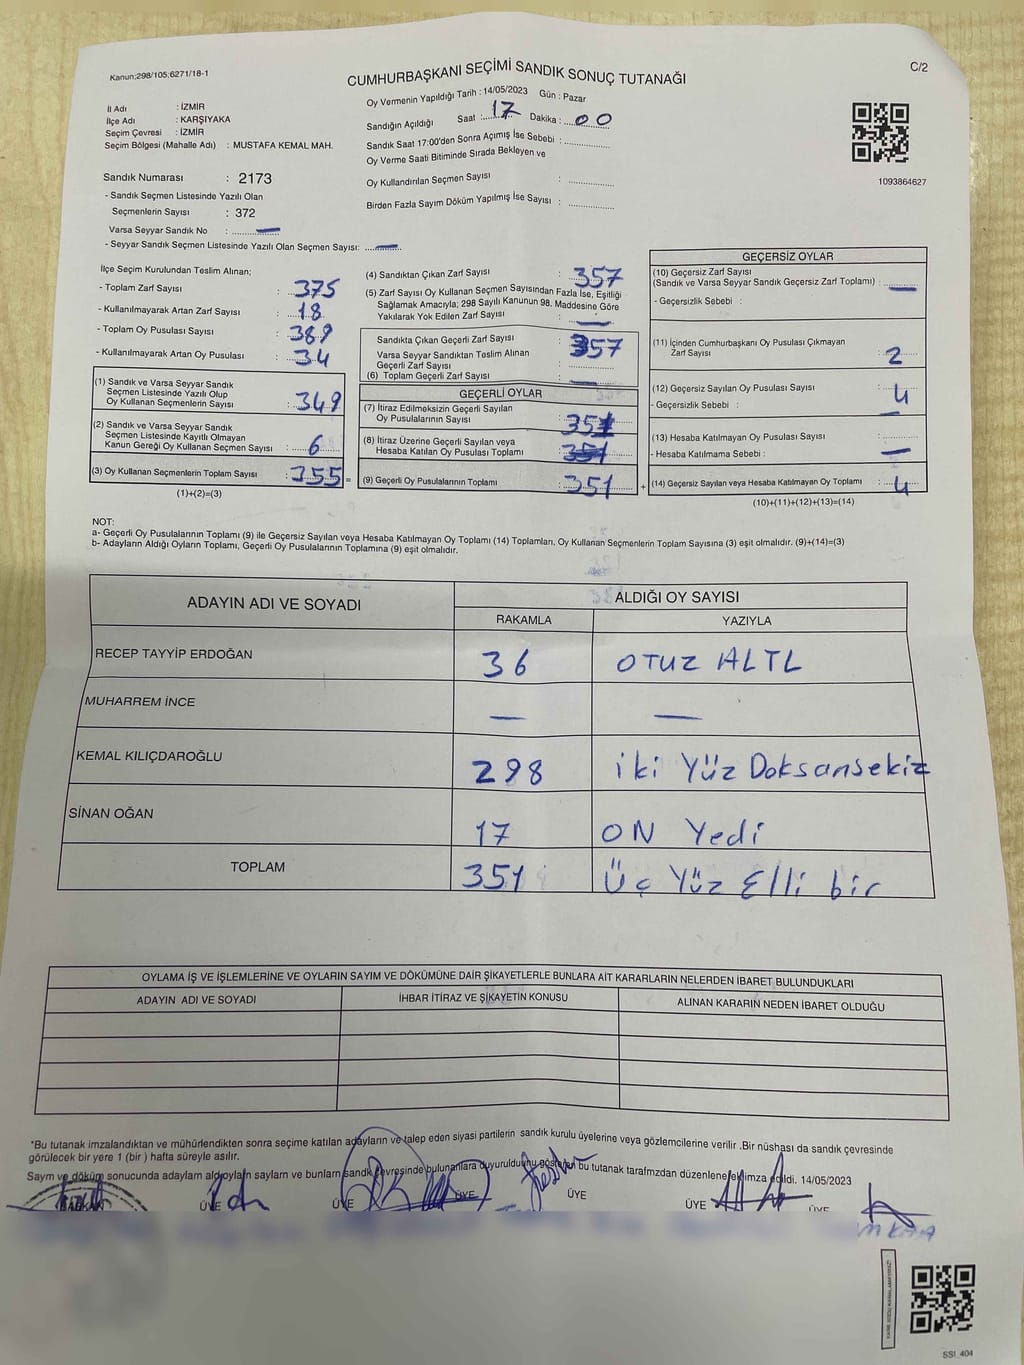 Kanun;298/105;6271/18-1
CUMHURBAŞKANI SEÇİMİ SANDIK SONUÇ TUTANAĞI
C/2
İl Adı : İZMİR
İlçe Adı : KARŞIYAKA
Seçim Çevresi : İZMİR
Seçim Bölgesi (Mahalle Adı) : MUSTAFA KEMAL MAH.
Oy Vermenin Yapıldığı Tarih : 14/05/2023 Gün : Pazar
Sandığın Açıldığı Saat : 17 Dakika : 00
Sandık Saat 17:00'den Sonra Açımış İse Sebebi :
Oy Verme Saati Bitiminde Sırada Bekleyen ve
Oy Kullandırılan Seçmen Sayısı :
Birden Fazla Sayım Döküm Yapılmış İse Sayısı :
1093864627
Sandık Numarası : 2173
- Sandık Seçmen Listesinde Yazılı Olan
Seçmenlerin Sayısı : 372
Varsa Seyyar Sandık No : —
- Seyyar Sandık Seçmen Listesinde Yazılı Olan Seçmen Sayısı: —
İlçe Seçim Kurulundan Teslim Alınan;
- Toplam Zarf Sayısı : 375
- Kullanılmayarak Artan Zarf Sayısı : 18
- Toplam Oy Pusulası Sayısı : 389
- Kullanılmayarak Artan Oy Pusulası : 34
(1) Sandık ve Varsa Seyyar Sandık
Seçmen Listesinde Yazılı Olup
Oy Kullanan Seçmenlerin Sayısı : 349
(2) Sandık ve Varsa Seyyar Sandık
Seçmen Listesinde Kayıtlı Olmayan
Kanun Gereği Oy Kullanan Seçmen Sayısı : 6
(3) Oy Kullanan Seçmenlerin Toplam Sayısı : 355 =
(1)+(2)=(3)
(4) Sandıktan Çıkan Zarf Sayısı : 357
(5) Zarf Sayısı Oy Kullanan Seçmen Sayısından Fazla İse, Eşitliği
Sağlamak Amacıyla; 298 Sayılı Kanunun 98. Maddesine Göre
Yakılarak Yok Edilen Zarf Sayısı : —
Sandıkta Çıkan Geçerli Zarf Sayısı : 357
Varsa Seyyar Sandıktan Teslim Alınan
Geçerli Zarf Sayısı :
(6) Toplam Geçerli Zarf Sayısı : —
GEÇERLİ OYLAR
(7) İtiraz Edilmeksizin Geçerli Sayılan
Oy Pusulalarının Sayısı : 351
(8) İtiraz Üzerine Geçerli Sayılan veya
Hesaba Katılan Oy Pusulası Toplamı :
(9) Geçerli Oy Pusulalarının Toplamı : 351 +
GEÇERSİZ OYLAR
(10) Geçersiz Zarf Sayısı
(Sandık ve Varsa Seyyar Sandık Geçersiz Zarf Toplamı) : —
- Geçersizlik Sebebi :
(11) İçinden Cumhurbaşkanı Oy Pusulası Çıkmayan
Zarf Sayısı : 2
(12) Geçersiz Sayılan Oy Pusulası Sayısı : 4
- Geçersizlik Sebebi : —
(13) Hesaba Katılmayan Oy Pusulası Sayısı :
- Hesaba Katılmama Sebebi : —
(14) Geçersiz Sayılan veya Hesaba Katılmayan Oy Toplamı : 4
(10)+(11)+(12)+(13)=(14)
NOT:
a- Geçerli Oy Pusulalarının Toplamı (9) ile Geçersiz Sayılan veya Hesaba Katılmayan Oy Toplamı (14) Toplamları, Oy Kullanan Seçmenlerin Toplam Sayısına (3) eşit olmalıdır. (9)+(14)=(3)
b- Adayların Aldığı Oyların Toplamı, Geçerli Oy Pusulalarının Toplamına (9) eşit olmalıdır.
ADAYIN ADI VE SOYADI ALDIĞI OY SAYISI
RAKAMLA YAZIYLA
RECEP TAYYİP ERDOĞAN 36 OTUZ ALTI
MUHARREM İNCE — —
KEMAL KILIÇDAROĞLU 298 iki Yüz Doksansekiz
SİNAN OĞAN 17 ON Yedi
TOPLAM 351 Üç Yüz Elli bir
OYLAMA İŞ VE İŞLEMLERİNE VE OYLARIN SAYIM VE DÖKÜMÜNE DAİR ŞİKAYETLERLE BUNLARA AİT KARARLARIN NELERDEN İBARET BULUNDUKLARI
ADAYIN ADI VE SOYADI İHBAR İTİRAZ VE ŞİKAYETİN KONUSU ALINAN KARARIN NEDEN İBARET OLDUĞU
*Bu tutanak imzalandıktan ve mühürlendikten sonra seçime katılan adayların ve talep eden siyasi partilerin sandık kurulu üyelerine veya gözlemcilerine verilir .Bir nüshası da sandık çevresinde
görülecek bir yere 1 (bir ) hafta süreyle asılır.
Sayım ve döküm sonucunda adayların aldıkları oyların sayıları ve bunların sandık çevresinde bulunanlara duyurulduğunu gösteren bu tutanak tarafımızdan düzenlenerek imza edildi. 14/05/2023
BAŞKAN ÜYE ÜYE ÜYE ÜYE ÜYE ÜYE
SSI_404